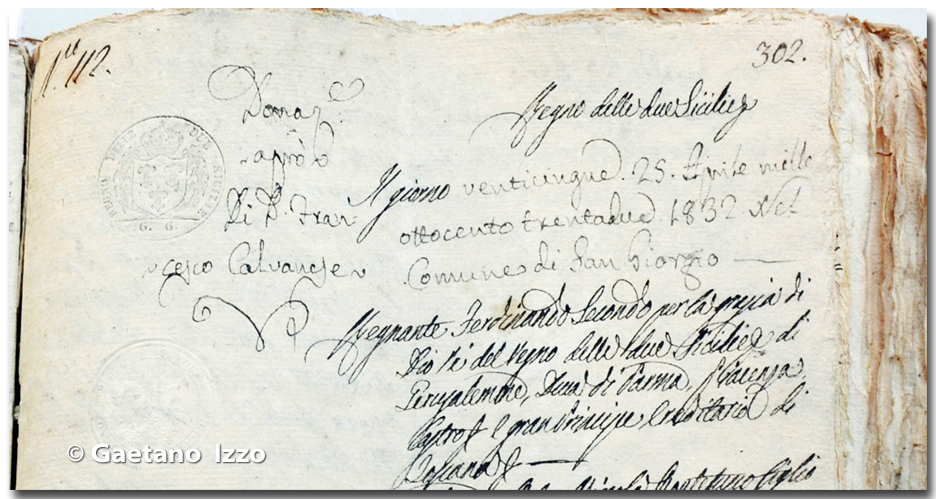 N.º 112.
302.
Donaz.e
a prò
Di D. Fran
cesco Calvanese
REGNO DELLE DUE SICILIE
G. 6.
Regno delle due Sicilie
Il giorno venticinque. 25. Aprile mille
ottocento trentadue 1832 Nel
Comune di San Giorgio
Regnante Ferdinando Secondo per la grazia di
Dio Re del Regno delle due Sicilie di
Gerusalemme, Duca di Parma, Piacenza
Castro e gran Principe Ereditario di
Toscana
figlio
© Gaetano Izzo